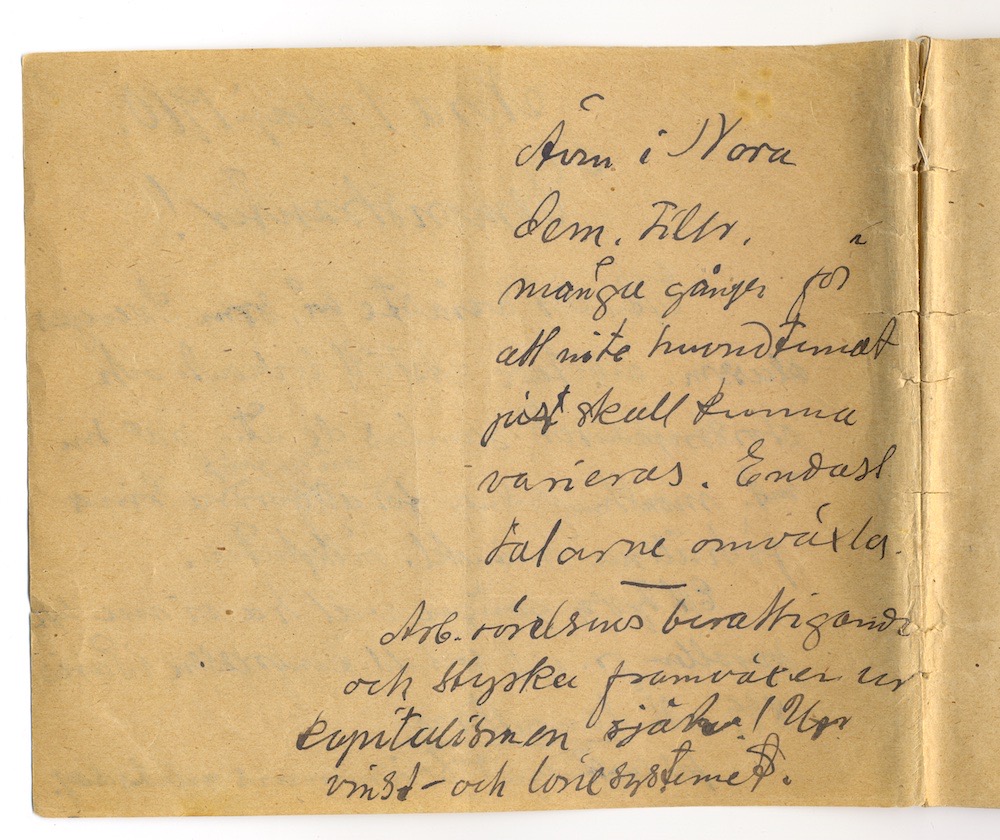 Även i Nora
dem. tillr.
många gånger för
att inte huvudtemat
just skall kunna
varieras. Endast
talarne omväxla.
Arb.rörelsens berättigande
och styrka framväxer ur
kapitalismen själv! Ur
vinst- och lönesystemet.